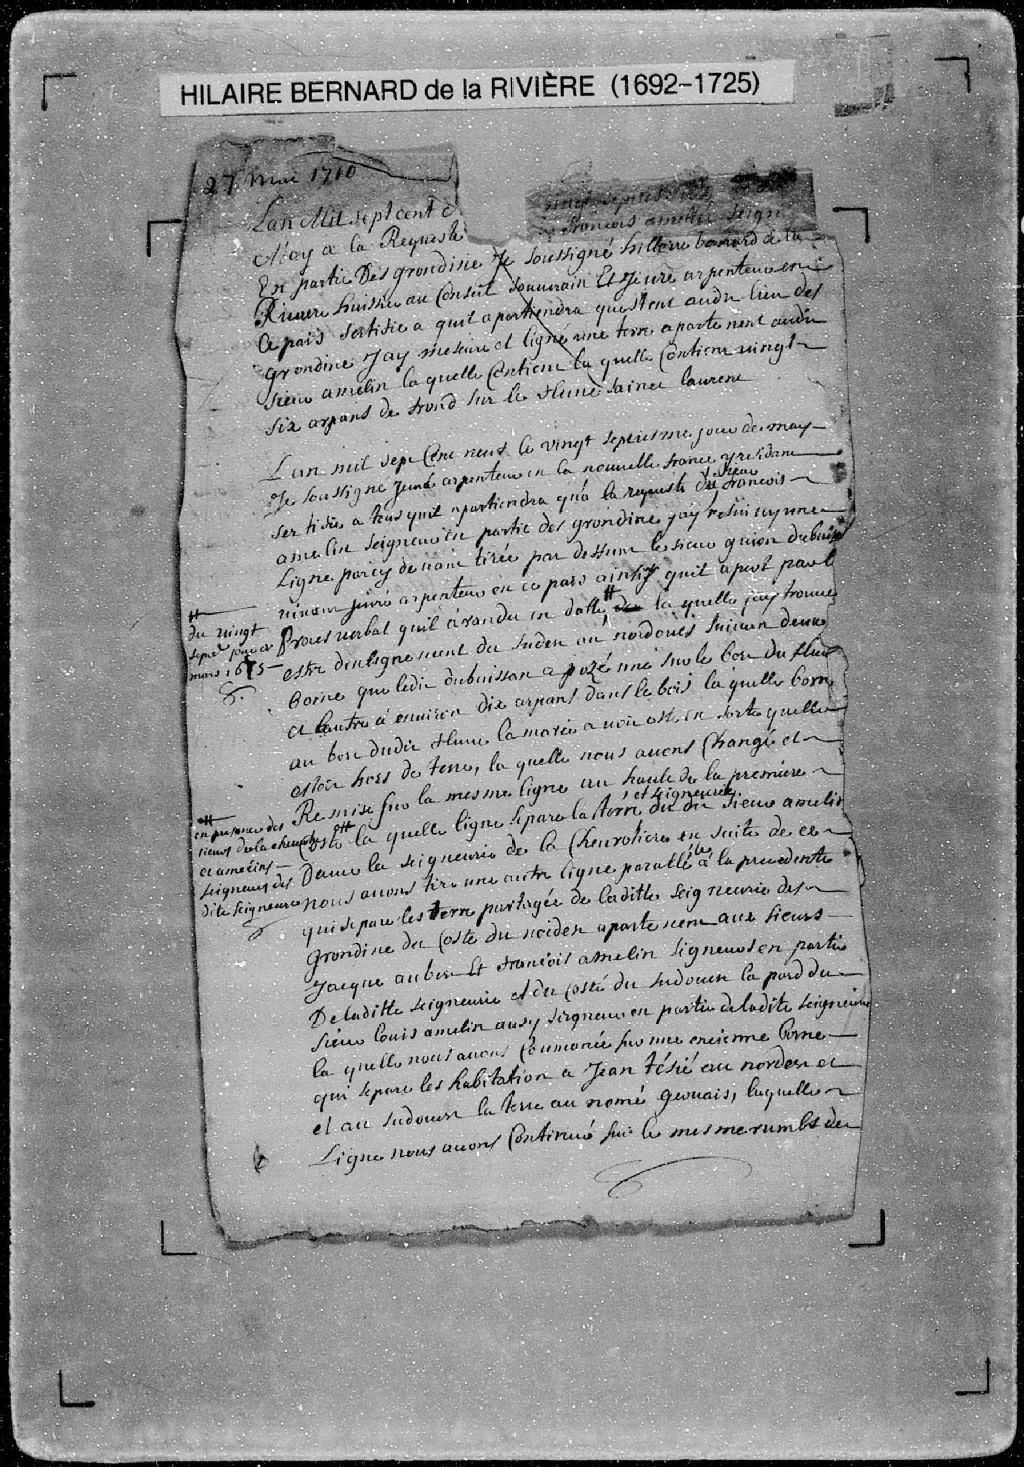 HILAIRE BERNARD de la RIVIÈRE (1692-1725)
27 mai 1710
Lan Mil sept cent
May a la Requeste
françois amelin seign
En partie Des grondisne Je soussigné hillere bernard de la
Riviere huissier au Conseil Souverain Et Juré arpenteur en
Ce pais sertifie a quil apartiendra questent audit lieu des
grondine Jay mesuré et ligné une terre apartenent audit
sieur amelin la quelle Contient la quelle Contient vingt
six arpans de frond sur le fleuve saint laurent
Lan mil sept Cent neuf le vingt septiesme jour de may
Je soussigné Juré arpenteur en la nouvelle france y residant
sertifie a tous quil apartiendra qua la requeste du sieur françois
amelin seigneur en partie des grondine jay resuivy une
Ligne par cy devant tirée par deffunt le sieur guion dubuiss
vivant juré arpenteur en ce pais ainsy quil apert par l
Proces verbal quil a randu en datte # de la quelle jay trouvé
# du vingt
sept jour de
mars 1675
estre d'enlignement du sudest au nordouest suivan deux
borne que ledit dubuisson a pozé une sur le bor du fleuve
et lautre a environ dix arpans dans le bois la quelle borne
au bor dudit fleuve la marée avoit osté en sorte quelle
estoit hors de terre, la quelle nous avons Changé et
Remise sur la mesme ligne au hault de la premiere
Coste # la quelle ligne separe la terre et seigneurie du dit sieur amelin
# en presence des
sieurs de la chevrotie
et amelins
seigneurs des
dite seigneurie
Davec la seigneurie de la Chevrotiere en suite de ce
nous avons tiré une autre ligne paralléle à la precedente
qui separe les terre partagée de laditte seigneurie des
grondine du Costé du nordest apartenent aux sieurs
Jacque aubert Et françois amelin signeurs en partie
De laditte seigneurie et du Costé du sudouest la pard du
sieur louis amelin aussy seigneur en partie de ladite seigneurie
la quelle nous avons Commancée sur une encienne borne
qui separe les habitation a Jean tésié au nordest et
et au sudouest la terre au nomé gervais, laquelle
Ligne nous avons Continué sur le mesme rumb de